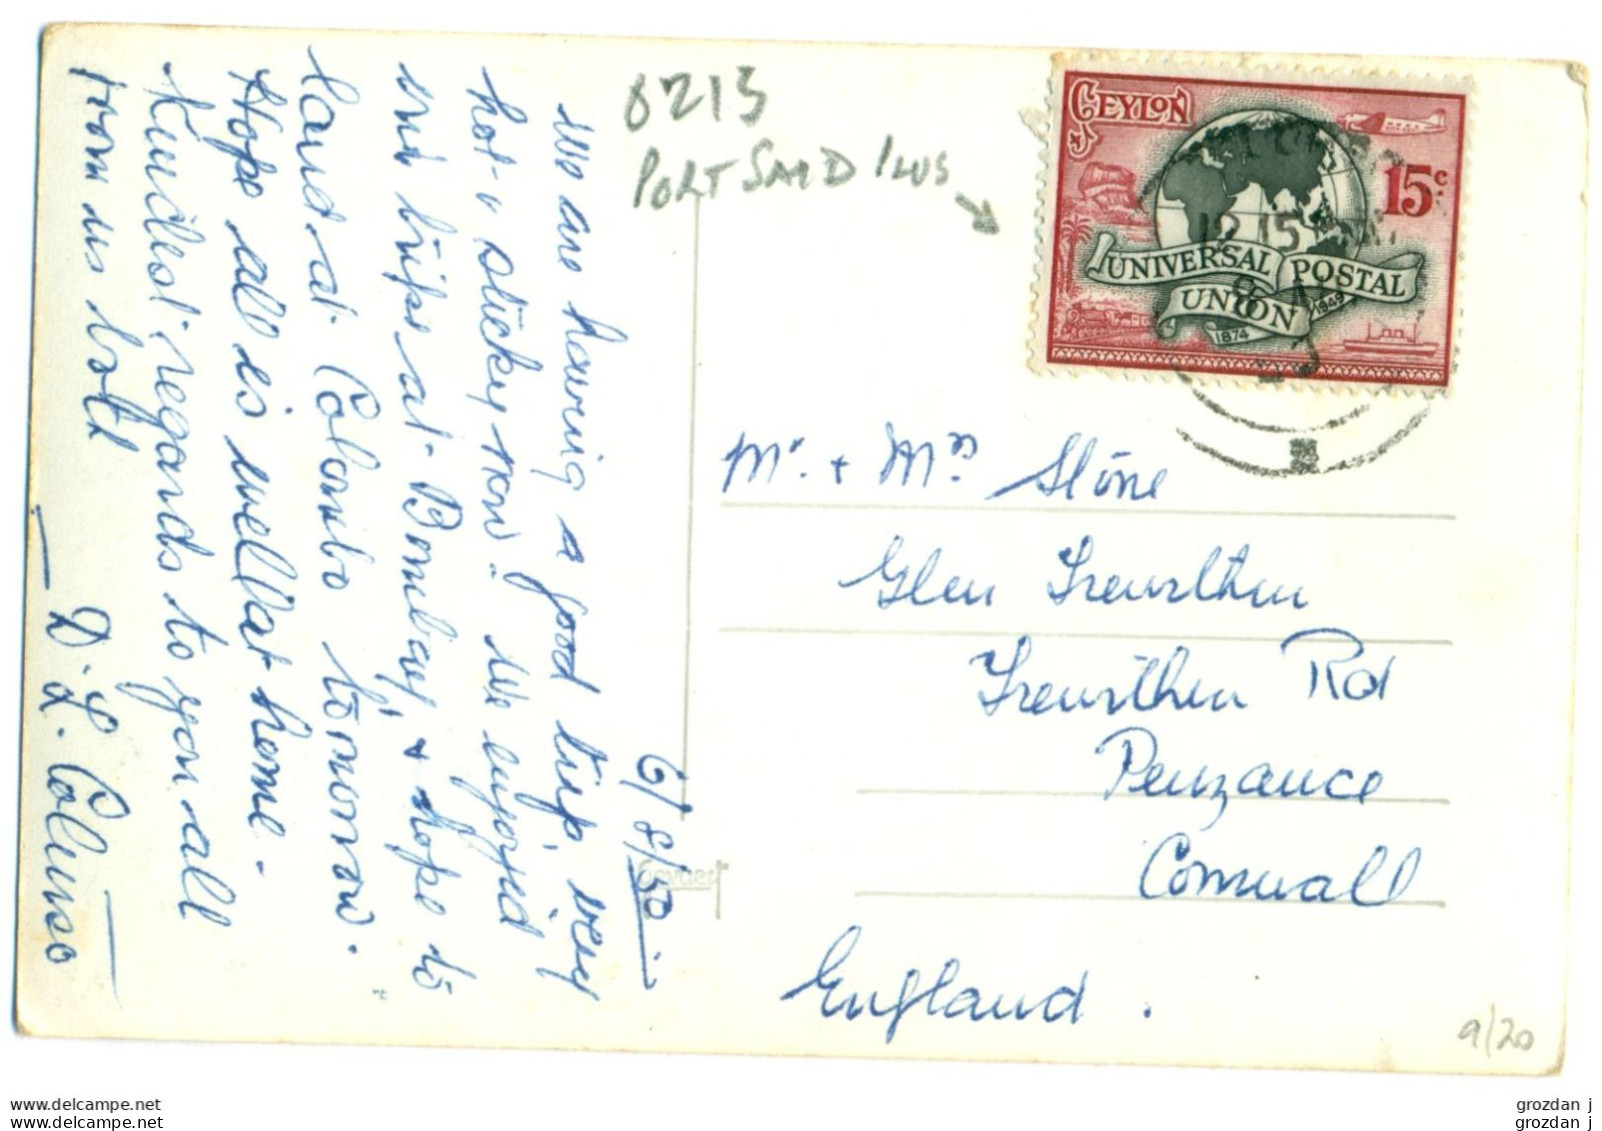 6/8/50
We are having a good trip, very
hot & sticky now. We enjoyed
our trips at Bombay, & hope to
land at Colombo tomorrow.
Hope all is well at home.
Kindest regards to you all
from us both
D. L.
0215
PORT SAID
CEYLON
15c
UNIVERSAL POSTAL
UNION
1874
1949
12 15
Mr. + Mrs Stone
Glen Trewithen
Trewithen Rd
Penzance
Cornwall
England.
Gevaert
9/20
www.delcampe.net
grozdan j
www.delcampe.net
grozdan j